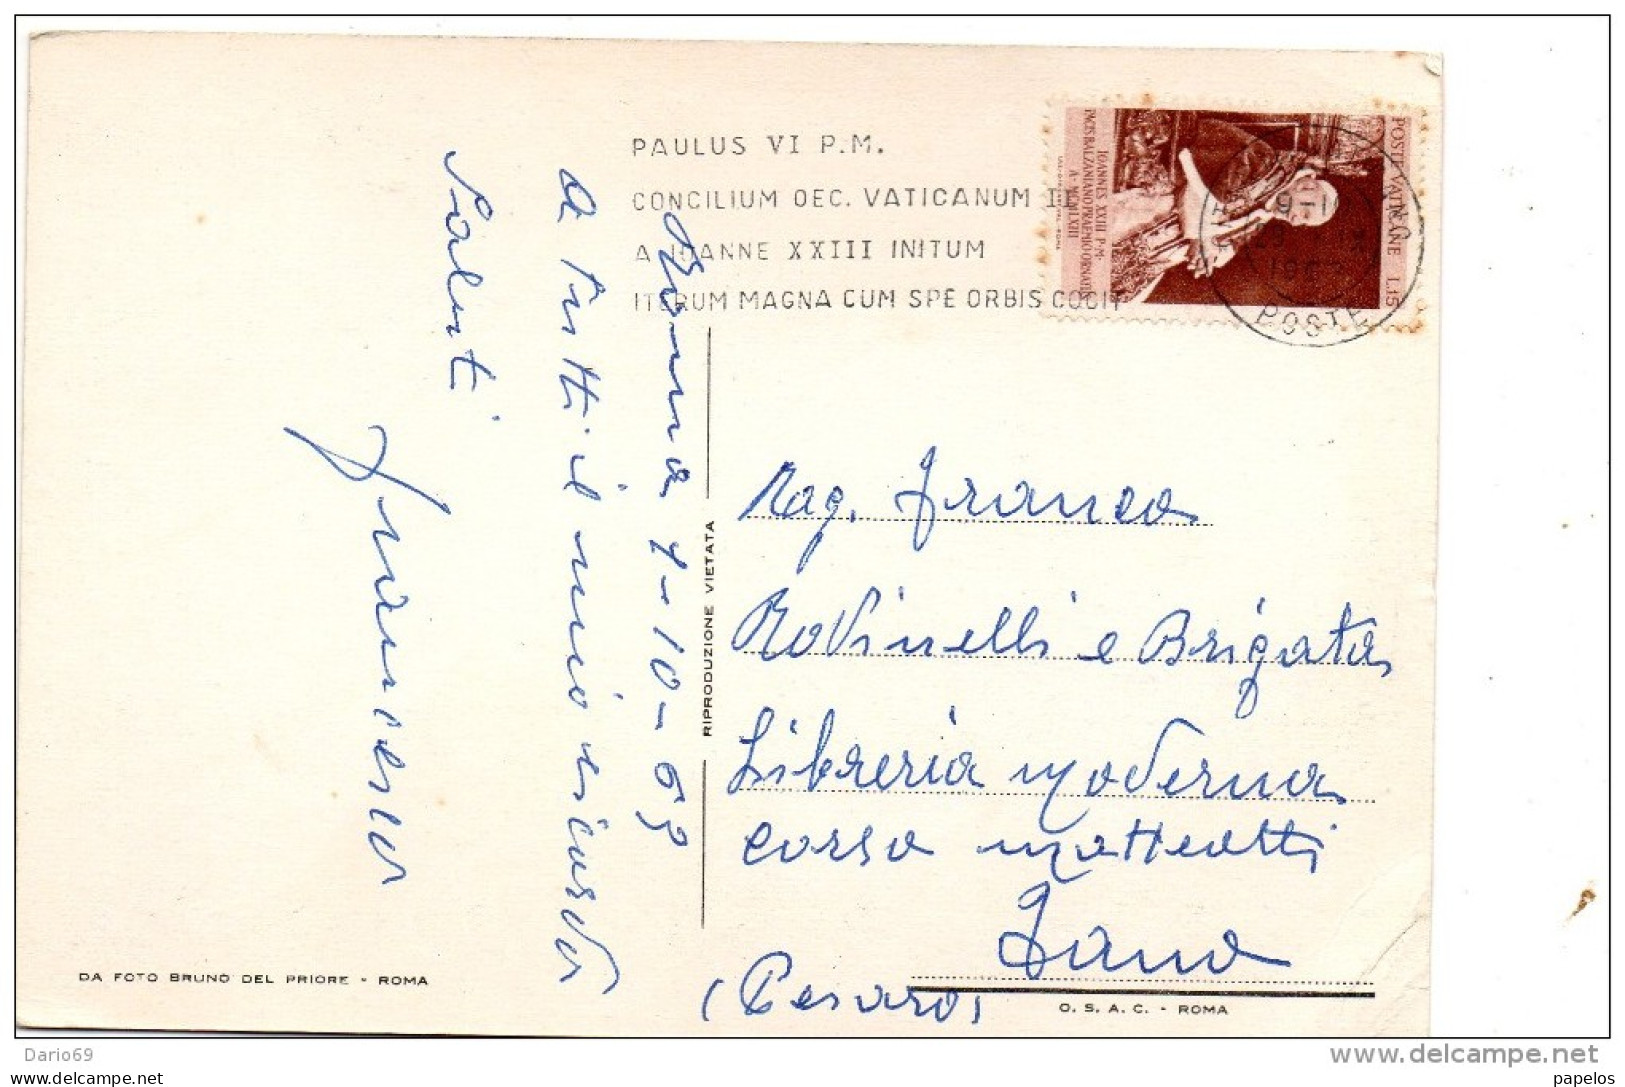 PAULUS VI P.M.
CONCILIUM OEC. VATICANUM II
A IOANNE XXIII INITUM
ITERUM MAGNA CUM SPE ORBIS COGIT
POSTE VATICANE L.15
IOANNES XXIII P.M.
PACIS BALZANIANO PRAEMIO ORNATUS
A· MCMLXIII
9-1
POSTE
Roma 4-10-63
A tutti il mio ricordo
Saluti
Francesco
RIPRODUZIONE VIETATA
Rag. Franco
Rovinelli e Brigata
Libreria Moderna
corso Matteotti
Fano
(Pesaro)
DA FOTO BRUNO DEL PRIORE - ROMA
O. S. A. C. - ROMA
Dario69
www.delcampe.net
papelos